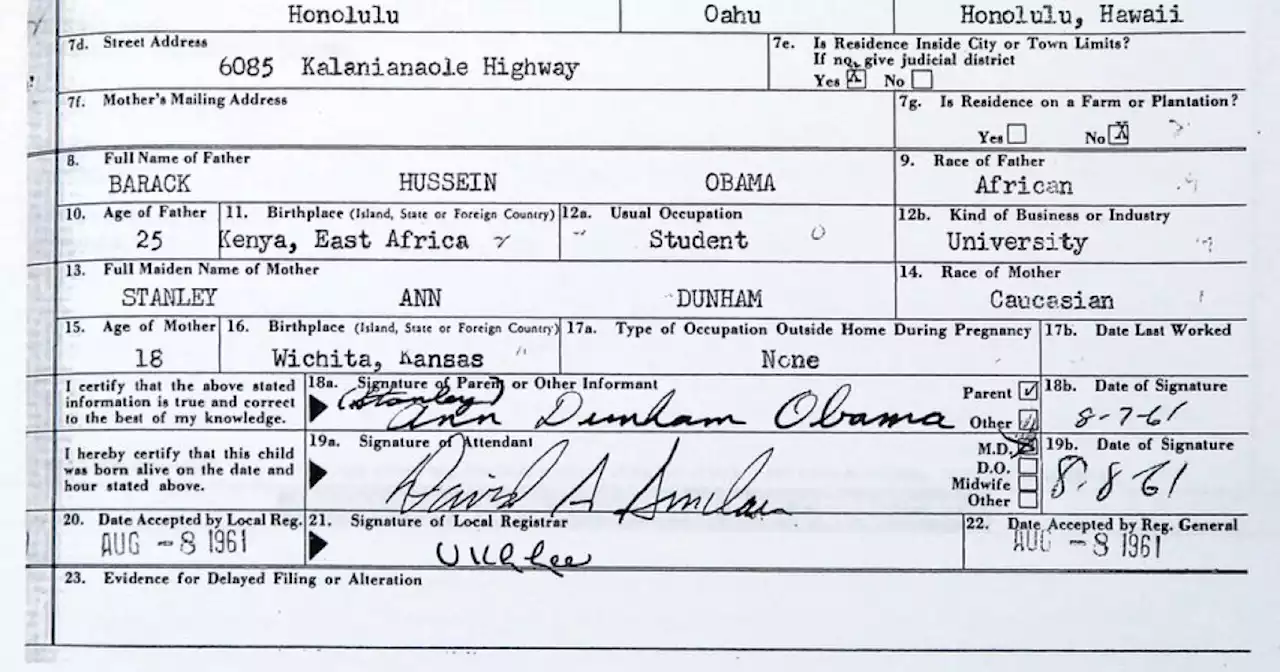 Honolulu Oahu Honolulu, Hawaii
7d. Street Address
6085 Kalanianaole Highway
7e. Is Residence Inside City or Town Limits?
If no, give judicial district
Yes X No
7f. Mother's Mailing Address
7g. Is Residence on a Farm or Plantation?
Yes No X
8. Full Name of Father
BARACK HUSSEIN OBAMA
9. Race of Father
African
10. Age of Father
25
11. Birthplace (Island, State or Foreign Country)
Kenya, East Africa
12a. Usual Occupation
Student
12b. Kind of Business or Industry
University
13. Full Maiden Name of Mother
STANLEY ANN DUNHAM
14. Race of Mother
Caucasian
15. Age of Mother
18
16. Birthplace (Island, State or Foreign Country)
Wichita, Kansas
17a. Type of Occupation Outside Home During Pregnancy
None
17b. Date Last Worked
I certify that the above stated
information is true and correct
to the best of my knowledge.
18a. Signature of Parent or Other Informant
(Stanley)
Ann Dunham Obama
Parent
Other
18b. Date of Signature
8-7-61
I hereby certify that this child
was born alive on the date and
hour stated above.
19a. Signature of Attendant
David A Sinclair
M.D.
D.O.
Midwife
Other
19b. Date of Signature
8-8-61
20. Date Accepted by Local Reg.
AUG -8 1961
21. Signature of Local Registrar
22. Date Accepted by Reg. General
AUG -8 1961
23. Evidence for Delayed Filing or Alteration